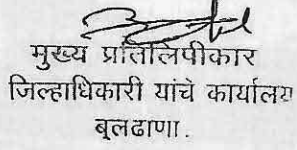 मुख्य प्रतिलिपीकार
जिल्हाधिकारी यांचे कार्यालय
बुलढाणा.